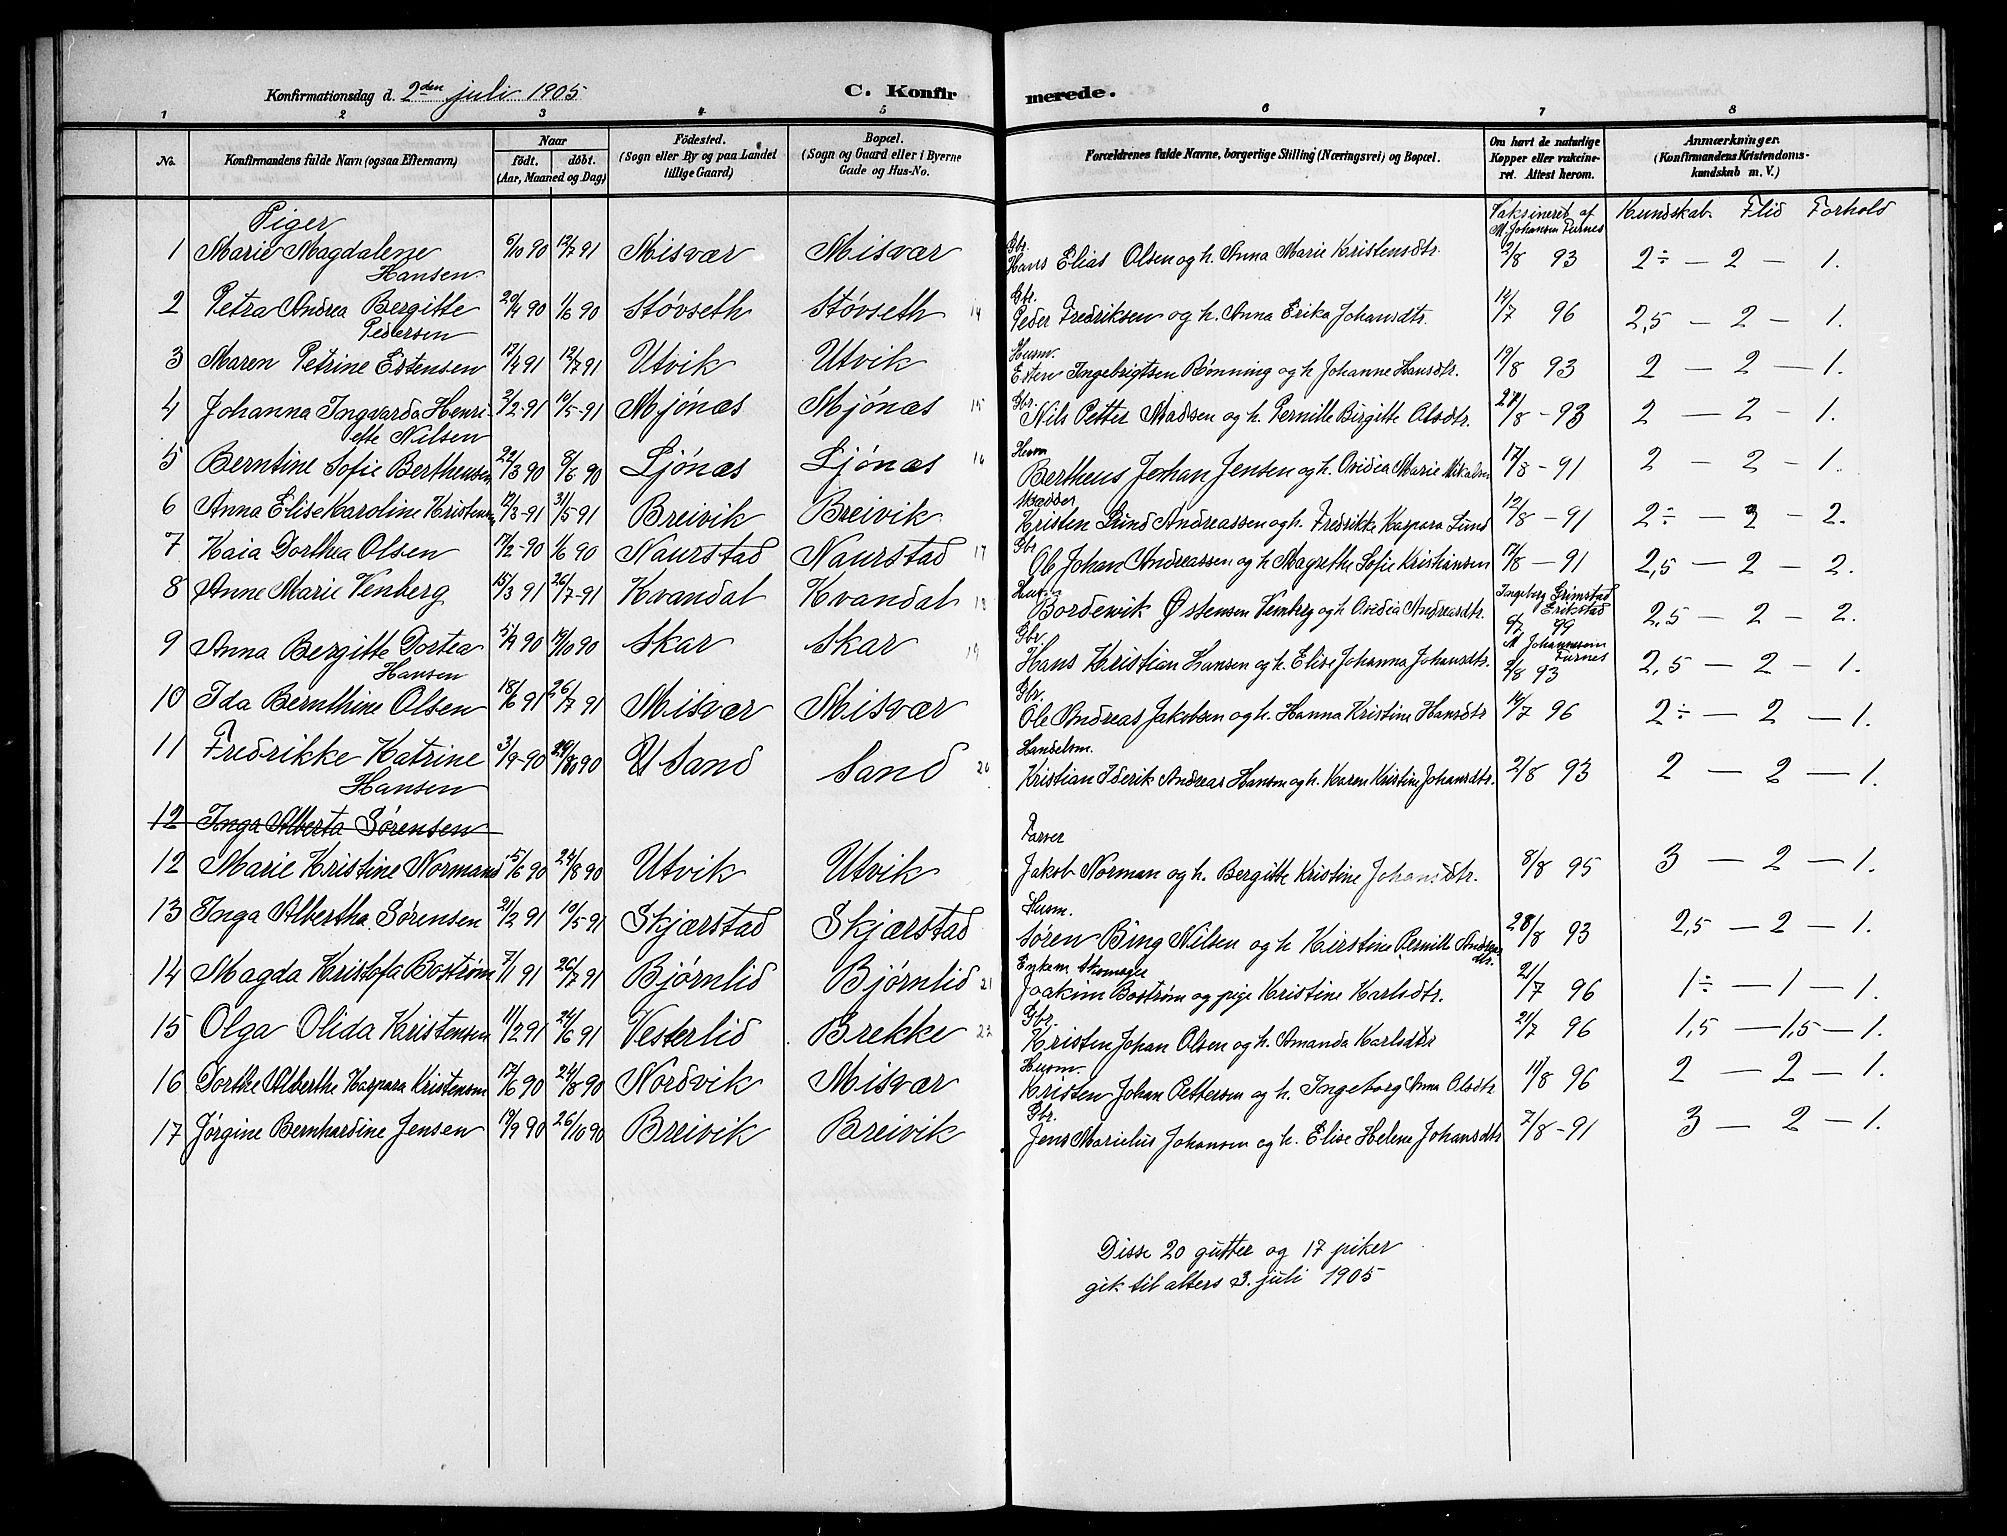 Konfirmationsdag d. 2den juli 1905
C. Konfirmerede.
1 2 3 4 5 6 7 8
No.
Konfirmandens fulde Navn (ogsaa Efternavn)
Naar
født. døbt.
(Aar, Maaned og Dag)
Fødested.
(Sogn eller By og paa Landet
tillige Gaard)
Bopæl.
(Sogn og Gaard eller i Byerne
Gade og Hus-No.
Forældrenes fulde Navne, borgerlige Stilling (Næringsvei) og Bopæl.
Om havt de naturlige
Kopper eller vakcine-
ret. Attest herom.
Anmærkninger.
(Konfirmandens Kristendoms-
kundskab m. V.)
Piger
Vaksineret af
M. Johansen Furnes
Kundskab Flid Forhold
1 Marie Magdalene Hansen 6/10 90 12/7 91 Misvær Misvær Gbr. Hans Elias Olsen og h. Anna Marie Kristensdtr. 2/8 93 2÷ — 2 — 1.
2 Petra Andrea Bergitte Pedersen 20/4 90 1/6 90 Støvseth Støvseth 14 Gbr. Peder Fredriksen og h. Anna Erika Johansdtr. 14/7 96 2,5 — 2 — 1.
3 Maren Petrine Estensen 17/4 91 12/7 91 Utvik Utvik Husm. Esten Ingebrigtsen Rønning og h Johanne Hansdtr. 19/8 93 2 — 2 — 1.
4 Johanna Ingvarda Henriette Nilsen 3/2-91 10/5-91 Mjónas Mjónas 15 Gbr. Nils Petter Madsen og h. Pernille Birgitte Olsdtr. 28/8-93 2 — 2 — 1.
5 Berntine Sofie Bertheusen 22/3 90 8/6 90 Ljónas Ljónas 16 Husm Bertheus Johan Jensen og h. Ovidea Marie 17/8-91 2 — 2 — 1.
6 Anna Elise Karoline Kristensen 12/3-91 31/5-91 Breivik Breivik Skrædder Kristen Lund Andreassen og h. Fredrikke Kaspara Lund 12/8-91 2÷ — 2 — 2.
7 Kaia Dorthea Olsen 17/2-90 1/6 90 Naurstad Naurstad 17 Gbr. Ole Johan Andreassen og h Magrethe Sofie Kristiansen 12/8-91 2,5 — 2 — 2.
8 Anne Marie Venberg 15/3 91 26/7-91 Kvandal Kvandal 18 Bordevik Østensen Venberg og h. Ovidia Andreasdtr. Ingeborg Grimstad Erikstad 99 2,5 — 2 — 2.
9 Anna Bergitte Dortea Hansen 5/9 90 19/10 90 Skar Skar 19 Gbr Hans Kristian Hansen og h. Elise Johanna Johansdtr. M Johannesen Furnes 2/8 93 2,5 — 2 — 1.
10 Ida Bernthine Olsen 18/6 91 26/7 91 Misvær Misvær Gbr. Ole Andreas Jakobsen og h. Hanna Kristine Hansdtr 14/7 96 2÷ — 2 — 1.
11 Fredrikke Katrine Hansen 3/9-90 90 Sand Sand 20 Handelsm. Kristian Iderik Andreas Hansen og h. Karen Kristine Johansdtr. 2/8 93 2 — 2 — 1.
12 Inga Alberta Sørensen
12 Marie Kristine Normand 15/6 90 24/8 90 Utvik Utvik Farver Jakob Norman og h. Bergitte Kristine Johansdtr. 8/8 95 3 — 2 — 1.
13 Inga Albertha Sørensen 21/2 91 10/5-91 Skjærstad Skjærstad Husm. Søren Bing Nilsen og h Kirstine Pernille Andreasdtr. 28/8 93 2,5 — 2 — 1.
14 Magda Kristofa Bostrøm 7/1 91 26/7 91 Bjørnlid Bjørnlid 21 Enkem Skomager Joakim Bostrøm og pige Kristine Karlsdtr. 21/7 96 1÷ — 1 — 1.
15 Olga Olida Kristensen 11/2 91 24/6 91 Vesterlid Brekke 22 Gbr. Kristen Johan Olsen og h. Amanda Karlsdtr 21/7 96 1,5 — 1,5 — 1.
16 Dorthe Alberthe Kaspara Kristensen 12/6 90 24/8 90 Nordvik Misvær Husm. Kristen Johan Pettersen og h. Ingeborg Anna Olsdtr 11/8 96 2 — 2 — 1.
17 Jørgine Bernhardine Jensen 19/9 90 26/10 90 Breivik Breivik Gbr. Jens Marielius Johansen og h. Elise Helene Johansdtr 7/8-91 3 — 2 — 1.
Disse 20 gutter og 17 piker
gik til alters 3. juli 1905